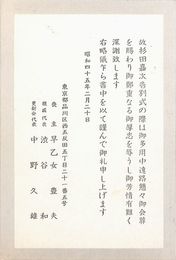 故杉田嘉次告別式の際は御多用中遠路態々御会葬
を賜わり御鄭重なる御厚志を辱うし御芳情有難く
深謝致します
右略儀乍ら書中を以て謹んで御礼申し上げます
昭和四十五年二月二十日
東京都品川区西五反田五丁目二十一番五号
喪主 早乙女豊
親戚代表 渋谷和夫
更新会代表 中野久雄